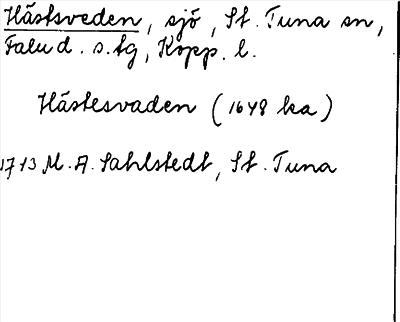 Hästsveden, sjö, St. Tuna sn,
Falu d. s. tg, Kopp. l.
Hästesvaden (1648 ka)
1713 M. A. Sahlstedt, St. Tuna